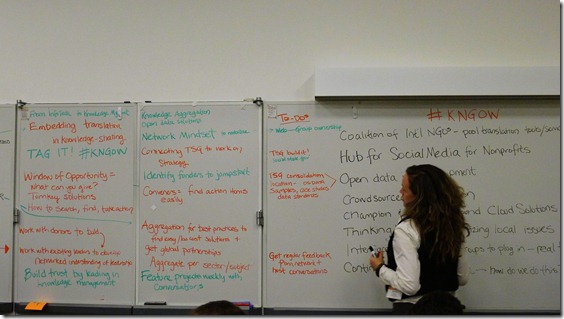 From Infoglut to Knowledge
Embedding translation
in Knowledge-sharing
TAG IT! #KNGOW
Window of Opportunity =
What can you give?
Turnkey solutions
time to search, find, take action
Work with donors to build
Work with existing leaders to
networked understanding of leadership
Build trust by leading in
knowledge management
Knowledge Aggregation
Open data
Network Mindset
Connecting TSG to work on
Strategy
Identify funders to jumpstart
Conveners = find action items
easily
Aggregation for best practices to
find easy/low cost solutions +
get global partnerships
Aggregate per sector/subject
Feature projects weekly with
Conversations
To-Do's
Web Group ownership
TSG build it!
TSG consolidation
location
samples, use cases
data standards
Get regular feedback
from network +
host conversations
#KNGOW
Coalition of Int'l NGOs - pool translation tools/
Hub for Social Media for Nonprofits
Open data
Crowdsource
Champion and Cloud Solutions
Thinking local issues
to plug in - real
How do we do this